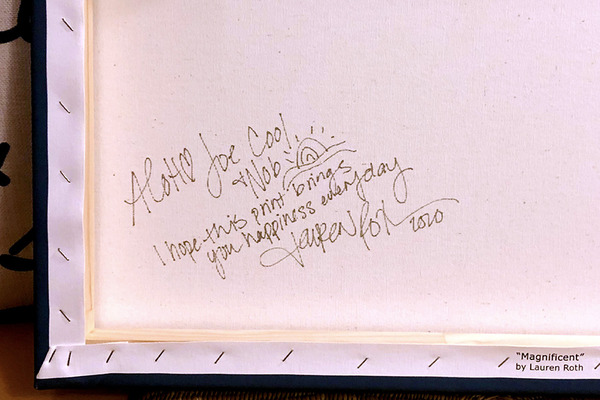 Aloha Joe Cool
& Nob
I hope this print brings
you happiness everyday
Lauren Roth 2020
"Magnificent"
by Lauren Roth